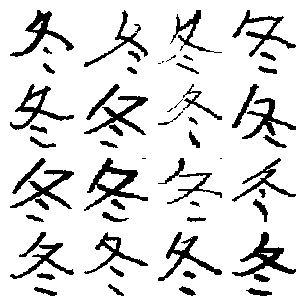 冬冬冬冬
冬冬冬冬
冬冬冬冬
冬冬冬冬